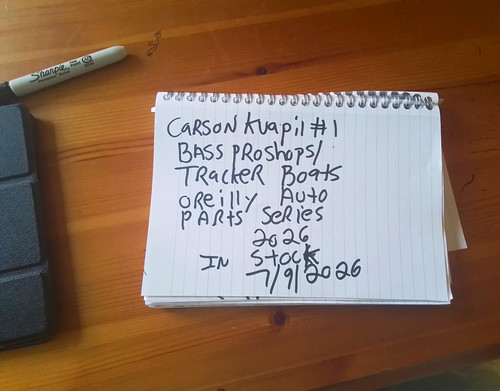 Sharpie
CARSON Kvapil #1
BASS PROSHOPS/
TRACKER BOATS
OREILLY AUTO
PARTS SERIES
2026
IN STOCK
7/9/2026